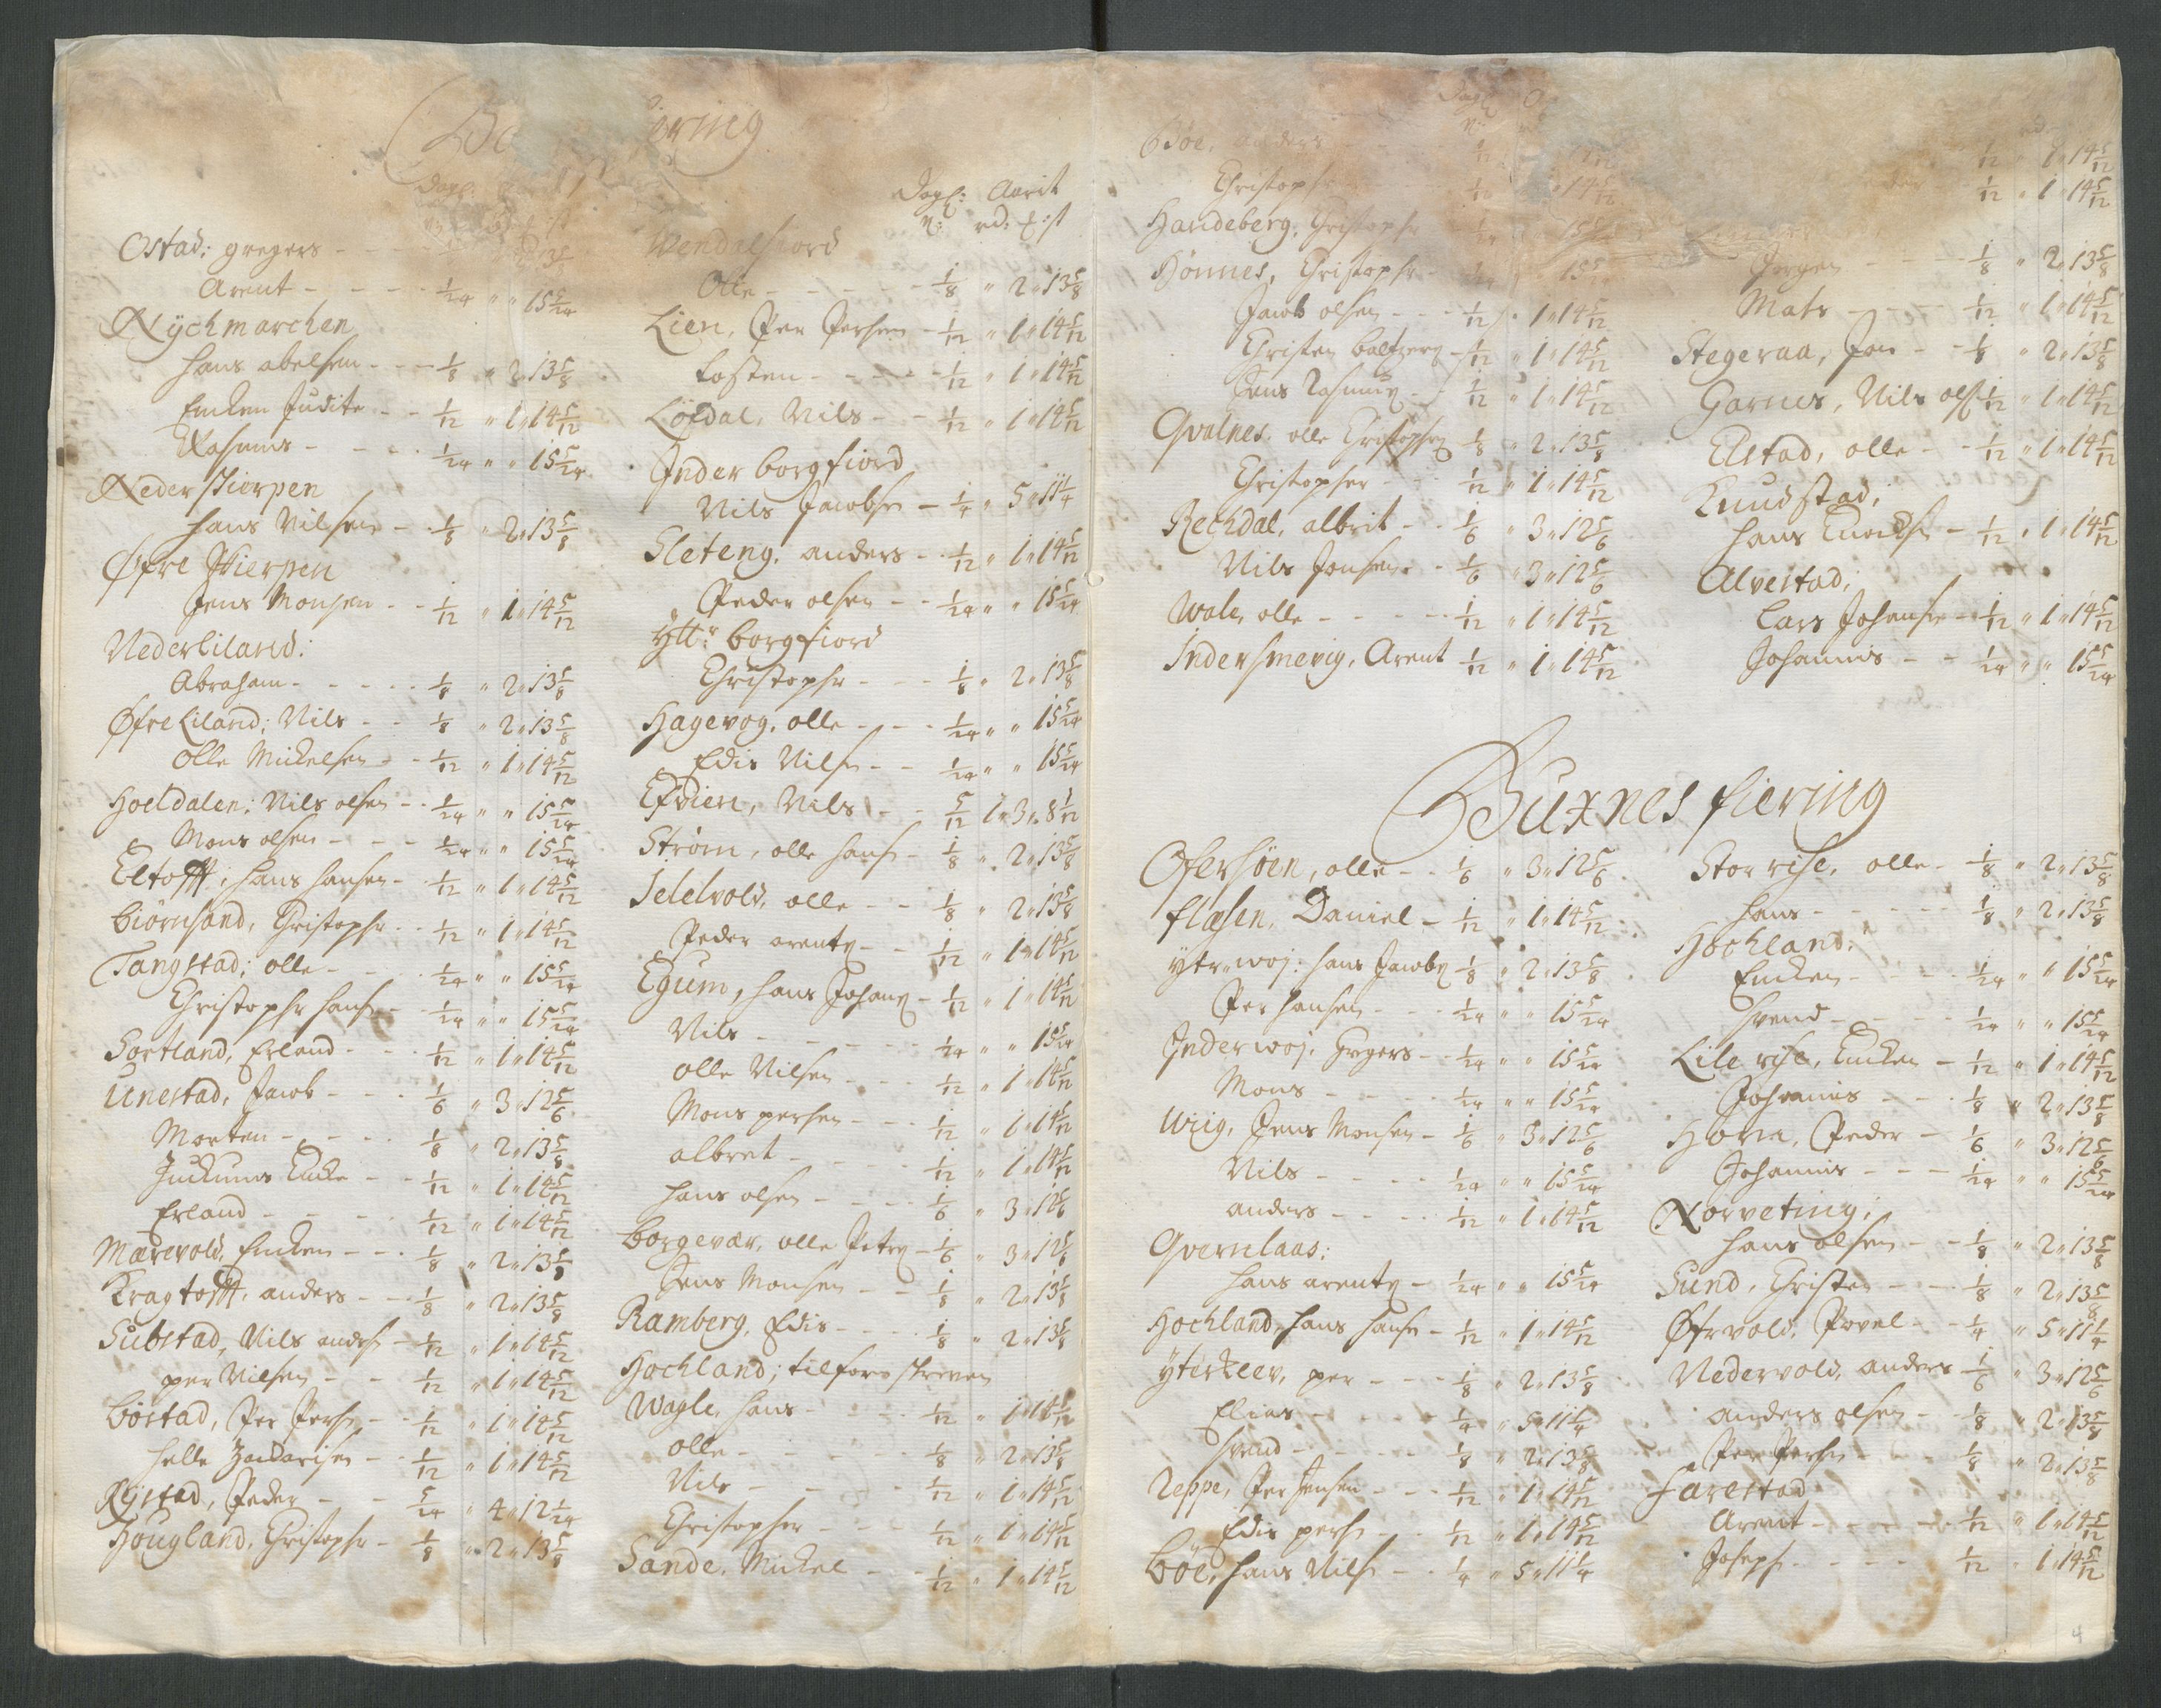 Bo fiering
Dagsl:
Ostad: gregers - - -
Arent - - - - 1/24 " " 15 5/24
Nychmarchen
Hans abelsen - - - 1/8 " 2 " 13 5/8
Encken Judite - - 1/12 " 1 " 14 5/12
Rasmus - - - - 1/24 " " 15 5/24
Neder Skierpen
Hans Nilsen - - 1/8 " 2 " 13 5/8
Øfre Skierpen
Jens Monsen - - 1/12 " 1 " 14 5/12
Nederliland:
Abraham - - - - 1/8 " 2 " 13 5/8
Øfre Liland: Nils - - 1/8 " 2 " 13 5/8
Olle Mickelsen - - 1/12 " 1 " 14 5/12
Hoeldalen: Nils olsen - - 1/24 " " 15 5/24
Mons olsen - - - 1/24 " " 15 5/24
Eltofft; hans hansen - - 1/12 " 1 " 14 5/12
Biörnsand, Christopher - - 1/12 " 1 " 14 5/12
Tangstad; olle - - - 1/24 " " 15 5/24
Christopher hansen - - 1/24 " " 15 5/24
Sortland, Erland - - - 1/12 " 1 " 14 5/12
Unestad, Jacob - - - 1/6 " 3 " 12 5/6
Morten - - - - 1/8 " 2 " 13 5/8
Encke - - 1/12 " 1 " 14 5/12
Erland - - - - 1/12 " 1 " 14 5/12
Mærevold, Encken - - - 1/8 " 2 " 13 5/8
Kragtofft, anders - - - 1/8 " 2 " 13 5/8
Substad, Nils anders - 1/12 " 1 " 14 5/12
per Nilsen - - 1/12 " 1 " 14 5/12
Böstad, Per Pers - - 1/12 " 1 " 14 5/12
Helle Zacarisen - - 1/12 " 1 " 14 5/12
Rystad, Peder - - - 5/24 " 4 " 12 1/24
Hougland, Christopher - 1/8 " 2 " 13 5/8
Dagsl: Aarit
N: rd: £: st
Wendalsfiord
Olle - - - - - 1/8 " 2 " 13 5/8
Lien, Per Persen - 1/12 " 1 " 14 5/12
Tosten - - - - - 1/12 " 1 " 14 5/12
Löfdal, Nils - - - 1/12 " 1 " 14 5/12
Inder borgfiord
Nils Jacobsen - 1/4 " 5 " 11 1/4
Sleteng, anders - - 1/12 " 1 " 14 5/12
Peder olsen - - 1/24 " " 15 5/24
Ytt:r borgfiord
Christopher - - - 1/8 " 2 " 13 5/8
Hagevog, olle - - - 1/24 " " 15 5/24
Edis Nils - - - 1/24 " " 15 5/24
Efdien, Nils - - 5/12 1 " 3 " 8 1/12
Strøm, olle hans - 1/8 " 2 " 13 5/8
Jelelvold, olle - - 1/8 " 2 " 13 5/8
Peder arents - - 1/12 " 1 " 14 5/12
Egum, hans Johans - 1/12 " 1 " 14 5/12
Nils - - - - - 1/24 " " 15 5/24
Olle Nilsen - - 1/12 " 1 " 14 5/12
Mons persen - - - 1/12 " 1 " 14 5/12
albret - - - - - 1/12 " 1 " 14 5/12
hans olsen - - - 1/6 " 3 " 12 5/6
Borgevær, olle Peters - 1/6 " 3 " 12 5/6
Jens Monsen - - 1/8 " 2 " 13 5/8
Ramberg, Edis - - - 1/8 " 2 " 13 5/8
Hochland; tilforn skreven
Wagle, hans - - - - 1/12 " 1 " 14 5/12
Olle - - - - - 1/8 " 2 " 13 5/8
Nils - - - - - 1/12 " 1 " 14 5/12
Christopher - - - 1/12 " 1 " 14 5/12
Sande, Mickel - - - 1/12 " 1 " 14 5/12
Dagsl:
N:
Böe, anders
Christopher
Haudeberg, Christopher
Hönnes, Christopher -
Jacob olsen - - - 1/12 " 1 " 14 5/12
Christen baltzers - 1/12 " 1 " 14 5/12
Jens Rasmus - - 1/12 " 1 " 14 5/12
Qvalnes, olle Christophers 1/8 " 2 " 13 5/8
Christopher - - - 1/12 " 1 " 14 5/12
Rechdal, albrit - - 1/6 " 3 " 12 5/6
Nils Jonsen - - 1/6 " 3 " 12 5/6
Wale, olle - - - - 1/12 " 1 " 14 5/12
Indersmerig, Arent 1/12 " 1 " 14 5/12
1/12 " 1 " 14 5/12
1/12 " 1 " 14 5/12
Jörgen - - - 1/8 " 2 " 13 5/8
Mats - - - - 1/12 " 1 " 14 5/12
Stegeraa, Jon - - 1/8 " 2 " 13 5/8
Garnes, Nils ols 1/12 " 1 " 14 5/12
Elstad, olle - - 1/12 " 1 " 14 5/12
Knudstad;
Hans Knuds - 1/12 " 1 " 14 5/12
Alvestad;
Lars Johans - 1/12 " 1 " 14 5/12
Johannis - - 1/24 " " 15 5/24
Buxnes fiering
Ofersöen, olle - - 1/6 " 3 " 12 5/6
flæsen, Daniel - 1/12 " 1 " 14 5/12
ytr woj: hans Jacobs 1/8 " 2 " 13 5/8
Per hansen - - - 1/24 " " 15 5/24
Inderwoj, Gregers - - 1/24 " " 15 5/24
Mons - - - - 1/24 " " 15 5/24
Urig, Jens Monsen - 1/6 " 3 " 12 5/6
Nils - - - - - 1/24 " " 15 5/24
anders - - - - 1/12 " 1 " 14 5/12
Qvernlaas;
hans arents - 1/24 " " 15 5/24
Hochland, hans hansen - 1/12 " 1 " 14 5/12
yterkleev, per - - - 1/8 " 2 " 13 5/8
Elias - - - - - 1/4 " 5 " 11 1/4
Svend - - - - - 1/8 " 2 " 13 5/8
Reppe, Per Jensen - - - 1/12 " 1 " 14 5/12
Edis pers - - - 1/12 " 1 " 14 5/12
Böe, hans Nils - - 1/4 " 5 " 11 1/4
Storrise, olle - 1/8 " 2 " 13 5/8
hans - - - - - 1/8 " 2 " 13 5/8
Hochland;
Encken - - - - 1/24 " " 15 5/24
Svend - - - - - 1/24 " " 15 5/24
Lilerise, Encken - 1/12 " 1 " 14 5/12
Johannis - - - 1/8 " 2 " 13 5/8
Hovn, Peder - 1/6 " 3 " 12 5/6
Johannis - - - 1/24 " " 15 5/24
Norveting;
hans olsen - - 1/8 " 2 " 13 5/8
Sund, Christen - - 1/8 " 2 " 13 5/8
Øfrvold, Povel - - 1/4 " 5 " 11 1/4
Nedervold, anders 1/6 " 3 " 12 5/6
anders olsen - - 1/8 " 2 " 13 5/8
Per Pers - - - 1/8 " 2 " 13 5/8
Farestad
Arent - - - - - 1/12 " 1 " 14 5/12
Joseph - - - - - 1/12 " 1 " 14 5/12
4